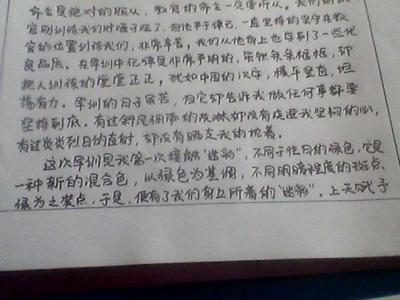 命令是绝对的服从，教官的命令一定要听从。我们的教
官训练我们时嗓子哑了，但他严于律己，一直坚持的坚守在教
官的位置训练我们，非常辛苦。我们从他身上也学到了一些优
良品质。在军训中纪律是非常严明的，条条框框，却
把人训练的堂堂正正，犹如中国的汉字，横平竖直，坦
荡有力。军训的日子虽苦，但它却告诉我做任何事都要
坚持到底。有过斜风细雨的洗淋却没有浇退我坚韧的心，
有过炎炎烈日的直射，却没有晒去我的执着。
这次军训是我第一次接触“迷彩”，不同于往日的绿色，它是
一种新的混合色，以绿色为基调，不同明暗程度的斑点、
绿为之装点，于是，便有了我们身上所着的“迷彩”。上天赋予